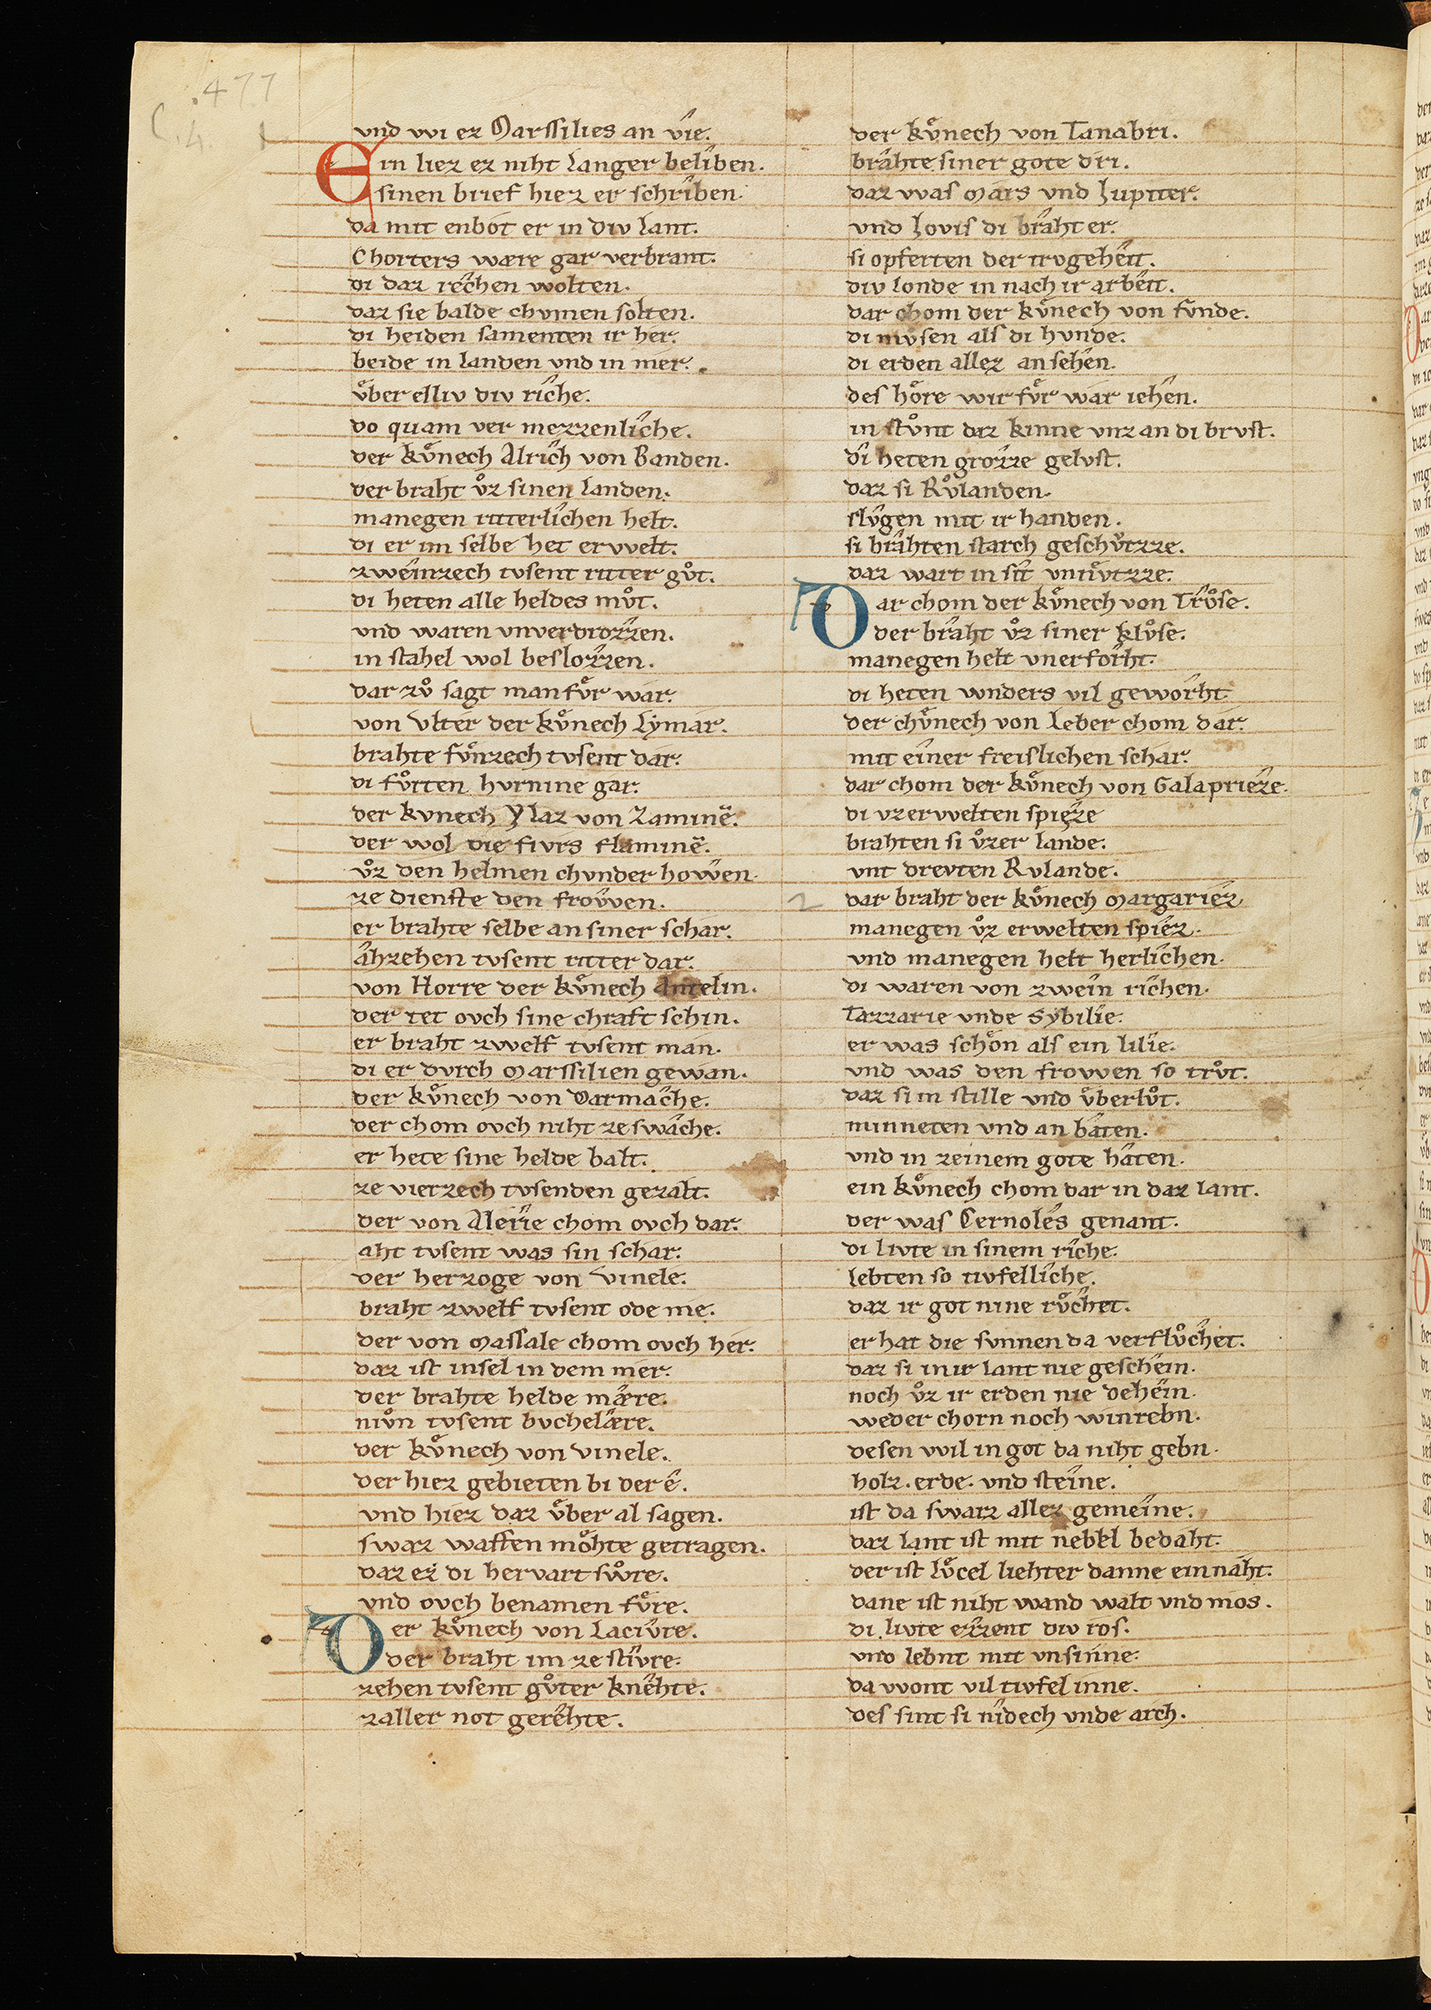 .477
C.4.
und wi ez Marssilies an vîe.
Ein liez ez niht langer belîben.
sinen brief hiez er schrîben.
da mit enbôt er in div lant.
Chorters wære gar verbrant.
di daz rêchen wolten.
daz sie balde chvmen solten.
di heiden samenten ir her.
beide in landen vnd in mer.
vͤber elliv div rîche.
do quam ver mezzenlîche.
der kvͤnech Alrîch von Banden.
der braht vͦz sinen landen.
manegen ritterlîchen helt.
di er im selbe het erwelt.
zweinzech tvsent ritter gvͦt.
di heten alle heldes mvͦt.
und waren vnverdrozzen.
in stahel wol beslozzen.
dar zvͦ sagt man fvͤr wâr.
von Vlter der kvͤnech Lymâr.
brahte fvͤnzech tvsent dâr.
di fvͦrten hvrnine gar.
der kvnech Ylaz von Zaminê.
der wol die fivrs flaminê.
vͦz den helmen chvnder howen.
ze dienste den froṽwen.
er brahte selbe an siner schar.
âhzehen tvsent ritter dar.
von Horre der kvͤnech Antelin.
der tet ovch sine chraft schin.
er braht zwelf tvsent mân.
di er dvrch Marssilien gewan.
der kvͤnech von Darmâche.
der chom ovch niht ze swâche.
er hete sine helde balt.
ze vierzech tvsenden gezalt.
der von Alerîe chom ovch dar.
aht tvsent was sin schar.
der herzoge von Vinele.
braht zwelf tvsent ode me.
der von Massale chom ovch her.
daz ist insel in dem mer.
der brahte helde mære.
nivͦn tvsent bvchelære.
der kvͤnech von Vinele.
der hiez gebieten bi der ê.
und hiez daz vͤber al sagen.
swaz waffen mohte getragen.
daz ez di hervart swͦre.
vnd ovch benamen fvͦre.
Der kvͤnech von Lacivͤre.
der braht im ze stîvre.
zehen tvsent gvͦter knêhte.
zaller not gerêhte.
der kvͤnech von Tanabri.
brâhte siner gote dri.
daz was Mârs vnd Jupiter.
vnd Jovis di brâht er.
si opferten der trvgehêit.
div londe in nach ir arbêit.
dar chom der kvͤnech von fvnde.
di mvͦsen als di hvnde.
di erden allez an sehên.
des hoͤre wir fvͤr wâr iehên.
in stvͦnt daz kinne vnz an di brvst.
dî heten grozze gelvst.
daz si Rvͦlanden.
slvͦgen mit ir handen.
si brâhten starch geschvͤtzze.
daz wart in sît vnnvͤtzze.
Dar chom der kvͤnech von Trvͦse.
der brâht vͦz siner klvͦse.
manegen helt vnerforht.
di heten wnders vil geworht
der chvͤnech von Leber chom dâr.
mit einer freislichen schâr.
dar chom der kvͤnech von Galapriêze.
di vz erwelten spieze
brahten si vͦzer lande.
vnt drevten Rvlande.
dar braht der kvͤnech Margariêz
manegen vͦz erwelten spiêz.
und manegen helt herlîchen.
di waren von zwein rîchen.
Tazzarie vnde Sybilîe.
er was schoͤn als ein lilîe.
und was den frowen so trvͦt.
daz si in stille vnd vͤberlvͦt.
minneten vnd an bâten.
vnd in zeinem gote hâten.
ein kvͤnech chom dar in daz lant.
der was Cernolês genant.
di livte in sinem rîche.
lebten so tivfellîche.
daz ir got nine rvͦchet.
er hat die svnnen da verflvͦchet.
daz si in ir lant nie geschêin.
noch vͦz ir erden nie dehêin.
weder chorn noch winrebn.
desen wil in got da niht gebn.
holz. erde. vnd stêine.
ist da swarz allez gemêine.
daz lant ist mit nebel bedaht.
der ist lvͤcel liehter danne ein nâht.
dane ist niht wand walt vnd mos.
di livte ezzent div ros.
vnd lebnt mit vnsinne.
da wont vil tivfel inne.
des sint si nîdech vnde arch.